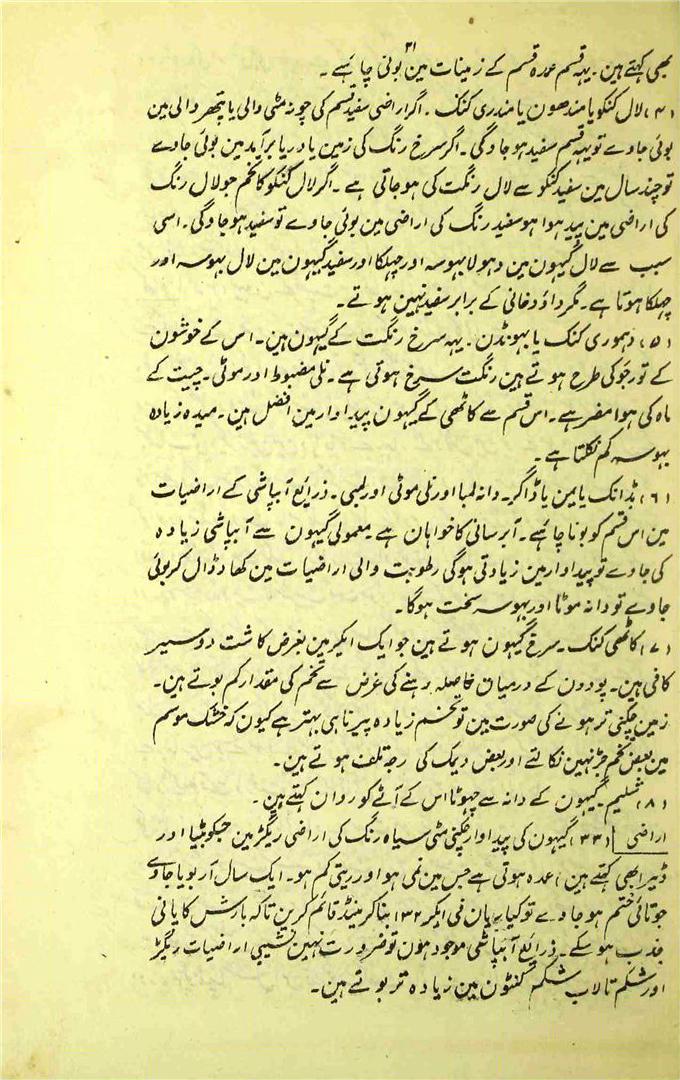 ۳۱
بھی کہتے ہین۔ یہہ قسم عمدہ قسم کے زمینات مین بوئی چاہیے۔
(۴) لال کنکو یا مندھون یا مندری کنک۔ اگر اراضی سفید قسم کی چونہ مٹی والی یا پتھر والی مین
بوئی جاوے تو یہہ قسم سفید ہو جاوگی۔ اگر سرخ رنگ کی زمین یا دریا برآمد مین بوئی جاوے
تو چند سال مین سفید کنکو سے لال رنگت کی ہو جاتی ہے۔ اگر لال کنکو کا تخم جو لال رنگ
کی اراضی مین پیدا ہوا ہو سفید رنگ کی اراضی مین بوئی جاوے تو سفید ہو جاوگی۔ اسی
سبب سے لال گیہون مین دہولا بہوسہ اور چہلکا اور سفید گیہون مین لال بہوسہ اور
چہلکا ہوتا ہے۔ مگر داؤدخانی کے برابر سفید نہین ہوتے۔
(۵) دہوری کنک یا بہونڈن۔ یہہ سرخ رنگت کے گیہون ہین۔ اس کے خوشون
کے تور جَو کی طرح ہوتے ہین رنگت سرخ ہوتی ہے۔ نلی مضبوط اور موٹی۔ چیت کے
ماہ کی ہوا مضر ہے۔ اس قسم سے کاٹھی کے گیہون پیداوار مین افضل ہین۔ میدہ زیادہ
بہوسہ کم نکلتا ہے۔
(۶) بڈانک یا مین یا ڈاگر۔ دانہ لمبا اور نلی موٹی اور لمبی۔ ذرائع آبپاشی کے اراضیات
مین اس قسم کو بونا چاہیے۔ آبرسانی کا خواہان ہے معمولی گیہون سے آبپاشی زیادہ
کی جاوے تو پیداوار مین زیادتی ہوگی رطوبت والی اراضیات مین کھاد ڈال کر بوئی
جاوے تو دانہ موٹا اور بہوسہ سخت ہوگا۔
(۷) کاٹھی کنک۔ سرخ گیہون ہوتے ہین جو ایک ایکر مین بغرض کاشت دو سیر
کافی ہین۔ پودون کے درمیان فاصلہ رہنے کی غرض سے تخم کی مقدار کم بوتے ہین۔
زمین چکنی تر ہونے کی صورت مین تو تخم زیادہ پیرنا ہی بہتر ہے کیون کہ خشک موسم
مین بعض تخم جڑ نہین نکالتے اور بعض دیمک کی وجہ تلف ہوتے ہین۔
(۸) گیہون کے دانہ سے چہوٹا اس کے آٹے کو روان کہتے ہین۔
اراضی (۳۳) گیہون کی پیداوار چکنی مٹی سیاہ رنگ کی اراضی ریگڑ مین جسکو بٹیا اور
ڈیرا بھی کہتے ہین عمدہ ہوتی ہے جس مین نمی ہو اور ریتی کم ہو۔ ایک سال آر بویا جاوے
جوتائی ختم ہو جاوے تو کیاریان فی ایکر ۱۳۲ بنا کر مینڈ قائم کرین تاکہ بارش کا پانی
جذب ہو سکے۔ ذرائع آبپاشی موجود ہون تو ضرورت نہین نشیبی اراضیات ریگڑ
اور شکم تالاب شکم کنٹون مین زیادہ تر بوتے ہین۔